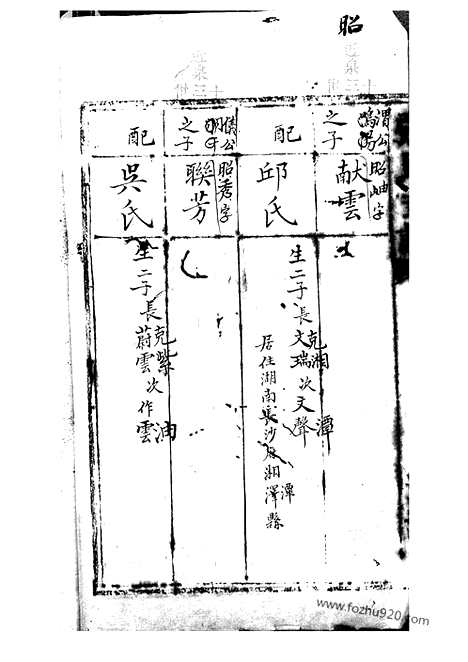 昭
渭公
之子
昭岫字
献雲
配
邱氏
生二子長克湘文瑞次文聲潭
居住湖南長沙府湘潭縣
之子
昭秀字
聯芳
配
吳氏
生二子長克紫蔚雲次作雲油
www.fozhu920.com